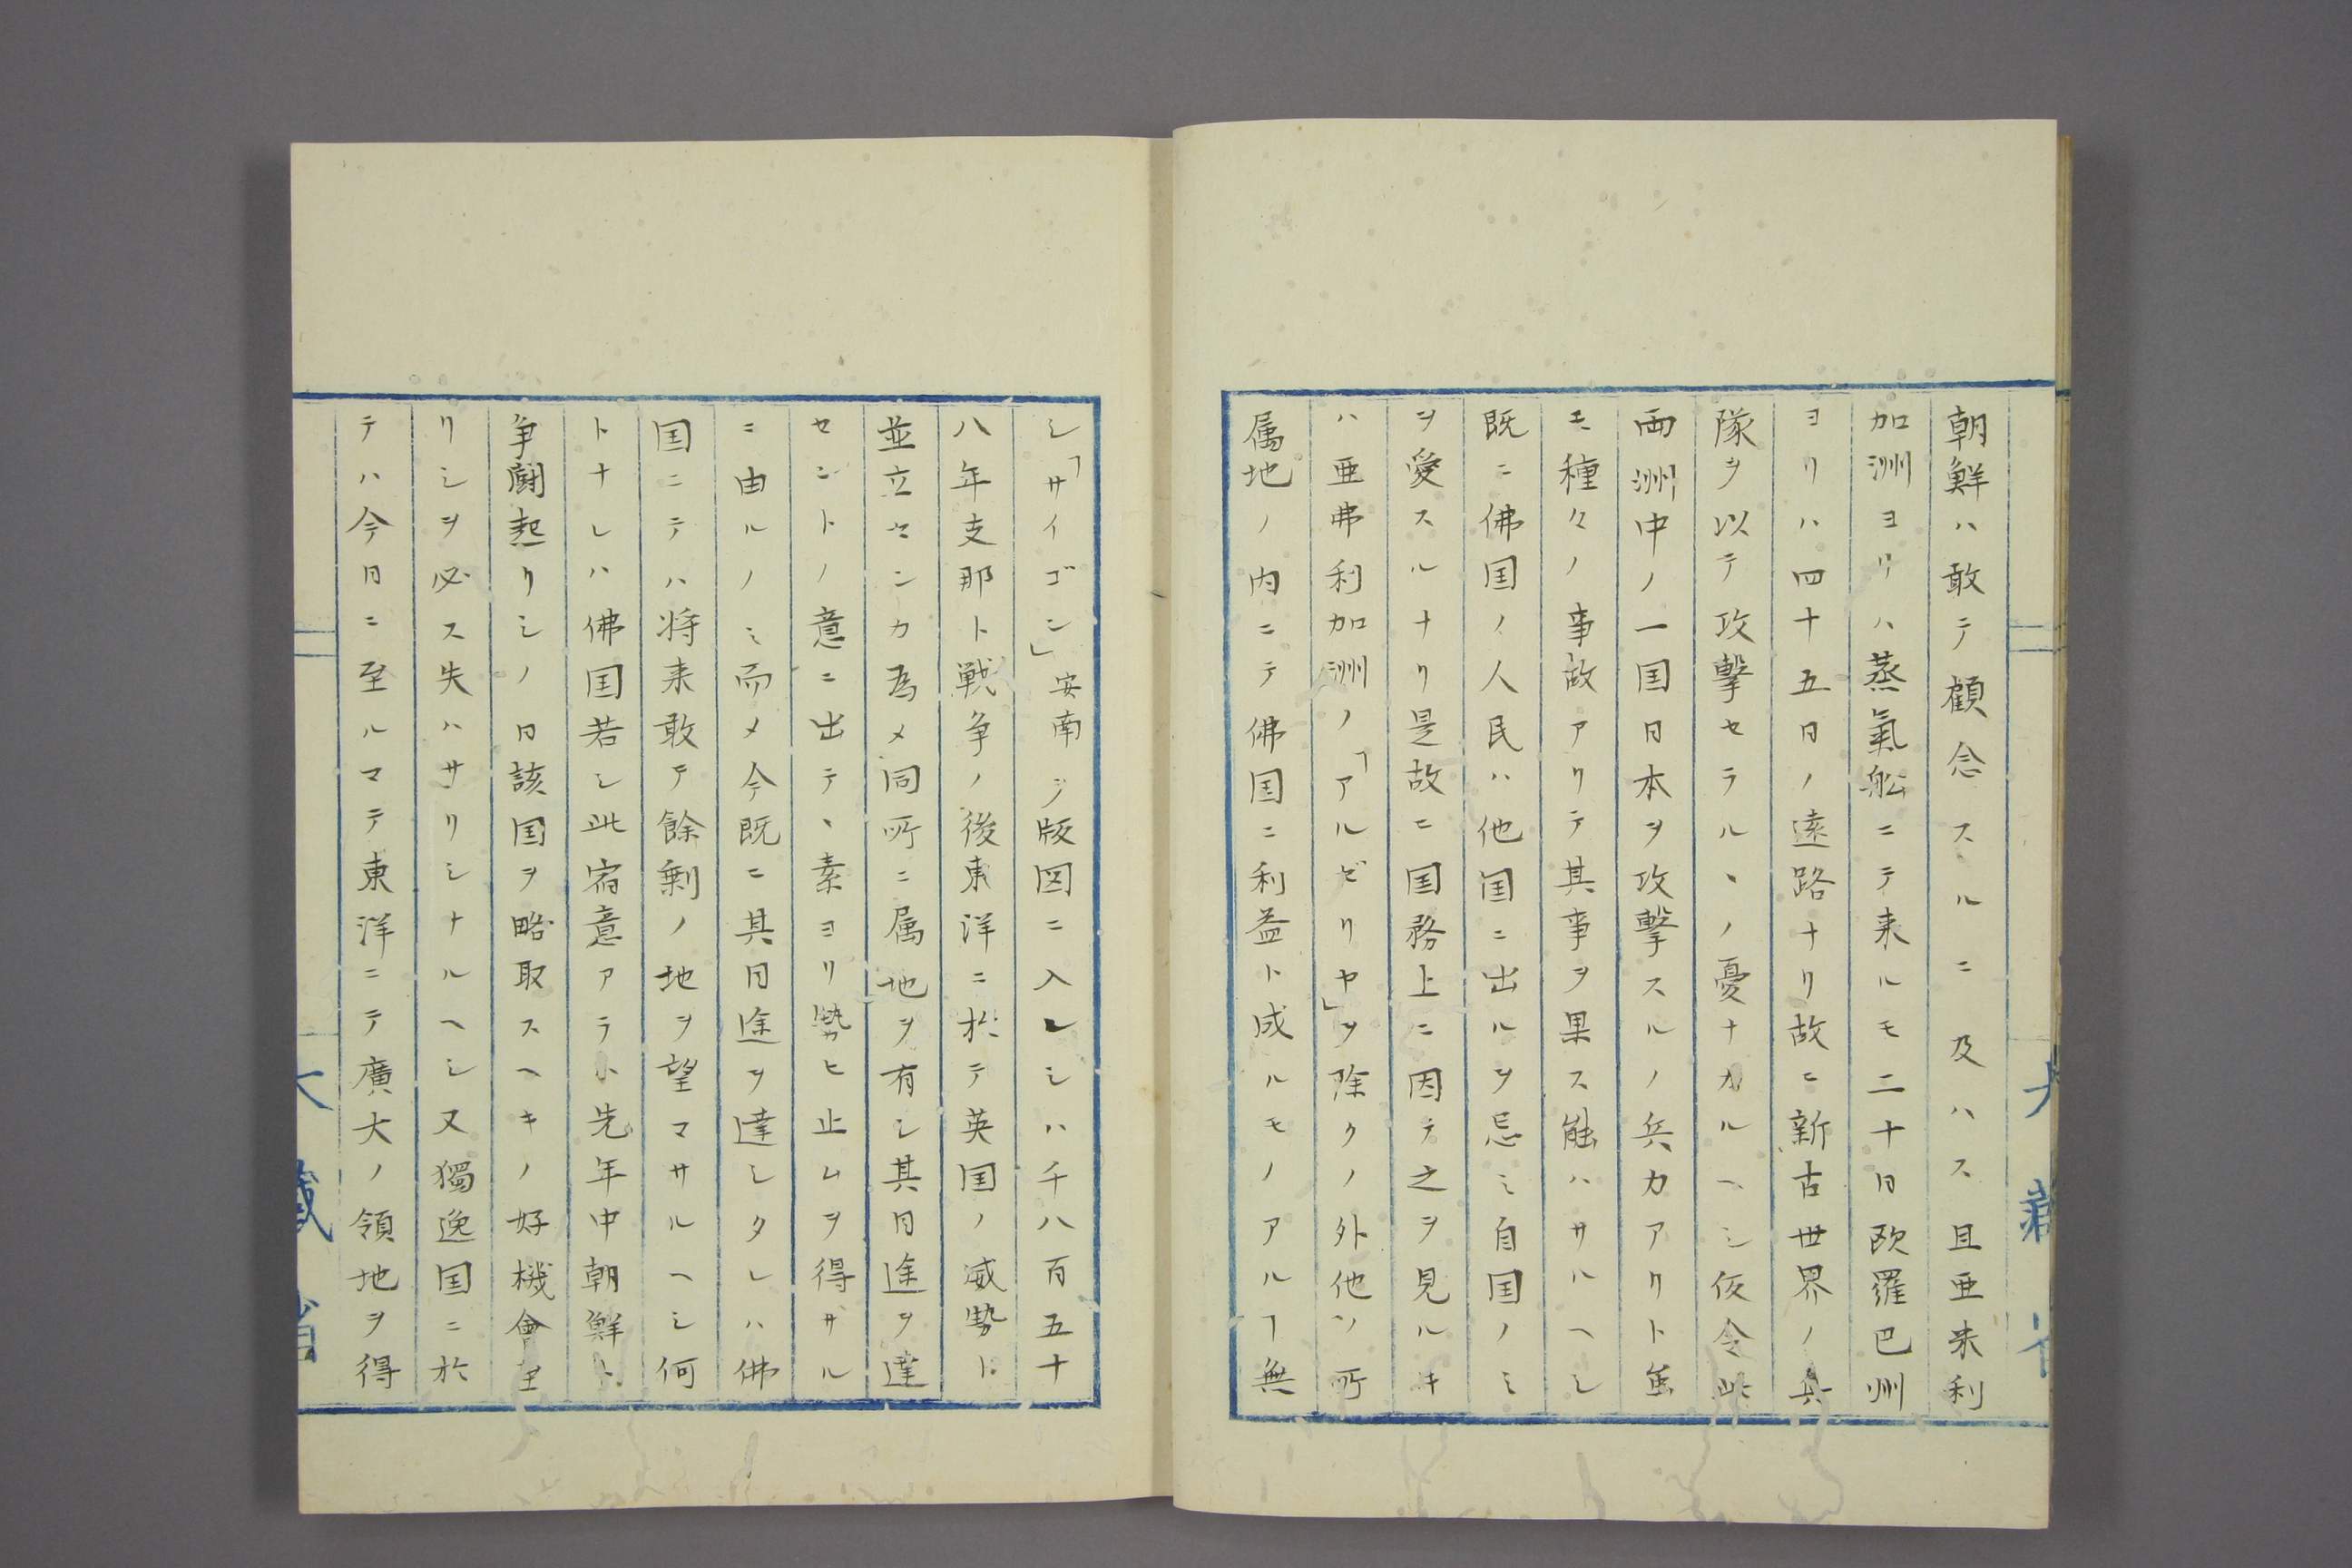 朝鮮ハ敢テ顧念スルニ及ハス且亜米利
加洲ヨリハ蒸氣舩ニテ来ルモ二十日欧羅巴洲
ヨリハ四十五日ノ遠路ナリ故ニ新古世界ノ兵
隊ヲ以テ攻撃セラルヽノ憂ナカルヘシ仮令此
両洲中ノ一国日本ヲ攻撃スルノ兵力アリト雖
モ種々ノ事故アリテ其事ヲ果ス能ハサルヘシ
既ニ佛国ノ人民ハ他国ニ出ルヲ忌ミ自国ノミ
ヲ愛スルナリ是故ニ国務上ニ因テ之ヲ見ルキ
ハ亜弗利加洲ノ「アルゼリヤ」ヲ除クノ外他ノ所
属地ノ内ニテ佛国ニ利益ト成ルモノアルヿ無
シ「サイゴン」安南ヲ版図ニ入レシハ千八百五十
八年支那ト戦争ノ後東洋ニ於テ英国ノ威勢ト
並立センカ為メ同所ニ属地ヲ有シ其目途ヲ達
センドノ意ニ出テヽ素ヨリ勢ヒ止ムヲ得サル
ニ由ルノミ而メ今既ニ其目途ヲ達シタレハ佛
国ニテハ将来敢テ餘剰ノ地ヲ望マサルヘシ何
トナレハ佛国若シ此宿意アラハ先年中朝鮮ト
争闘起リシノ日該国ヲ略取スヘキノ好機會至
リシヲ必ス失ハサリシナルヘシ又獨逸国ニ於
テハ今日ニ至ルマテ東洋ニテ廣大ノ領地ヲ得
大藏省